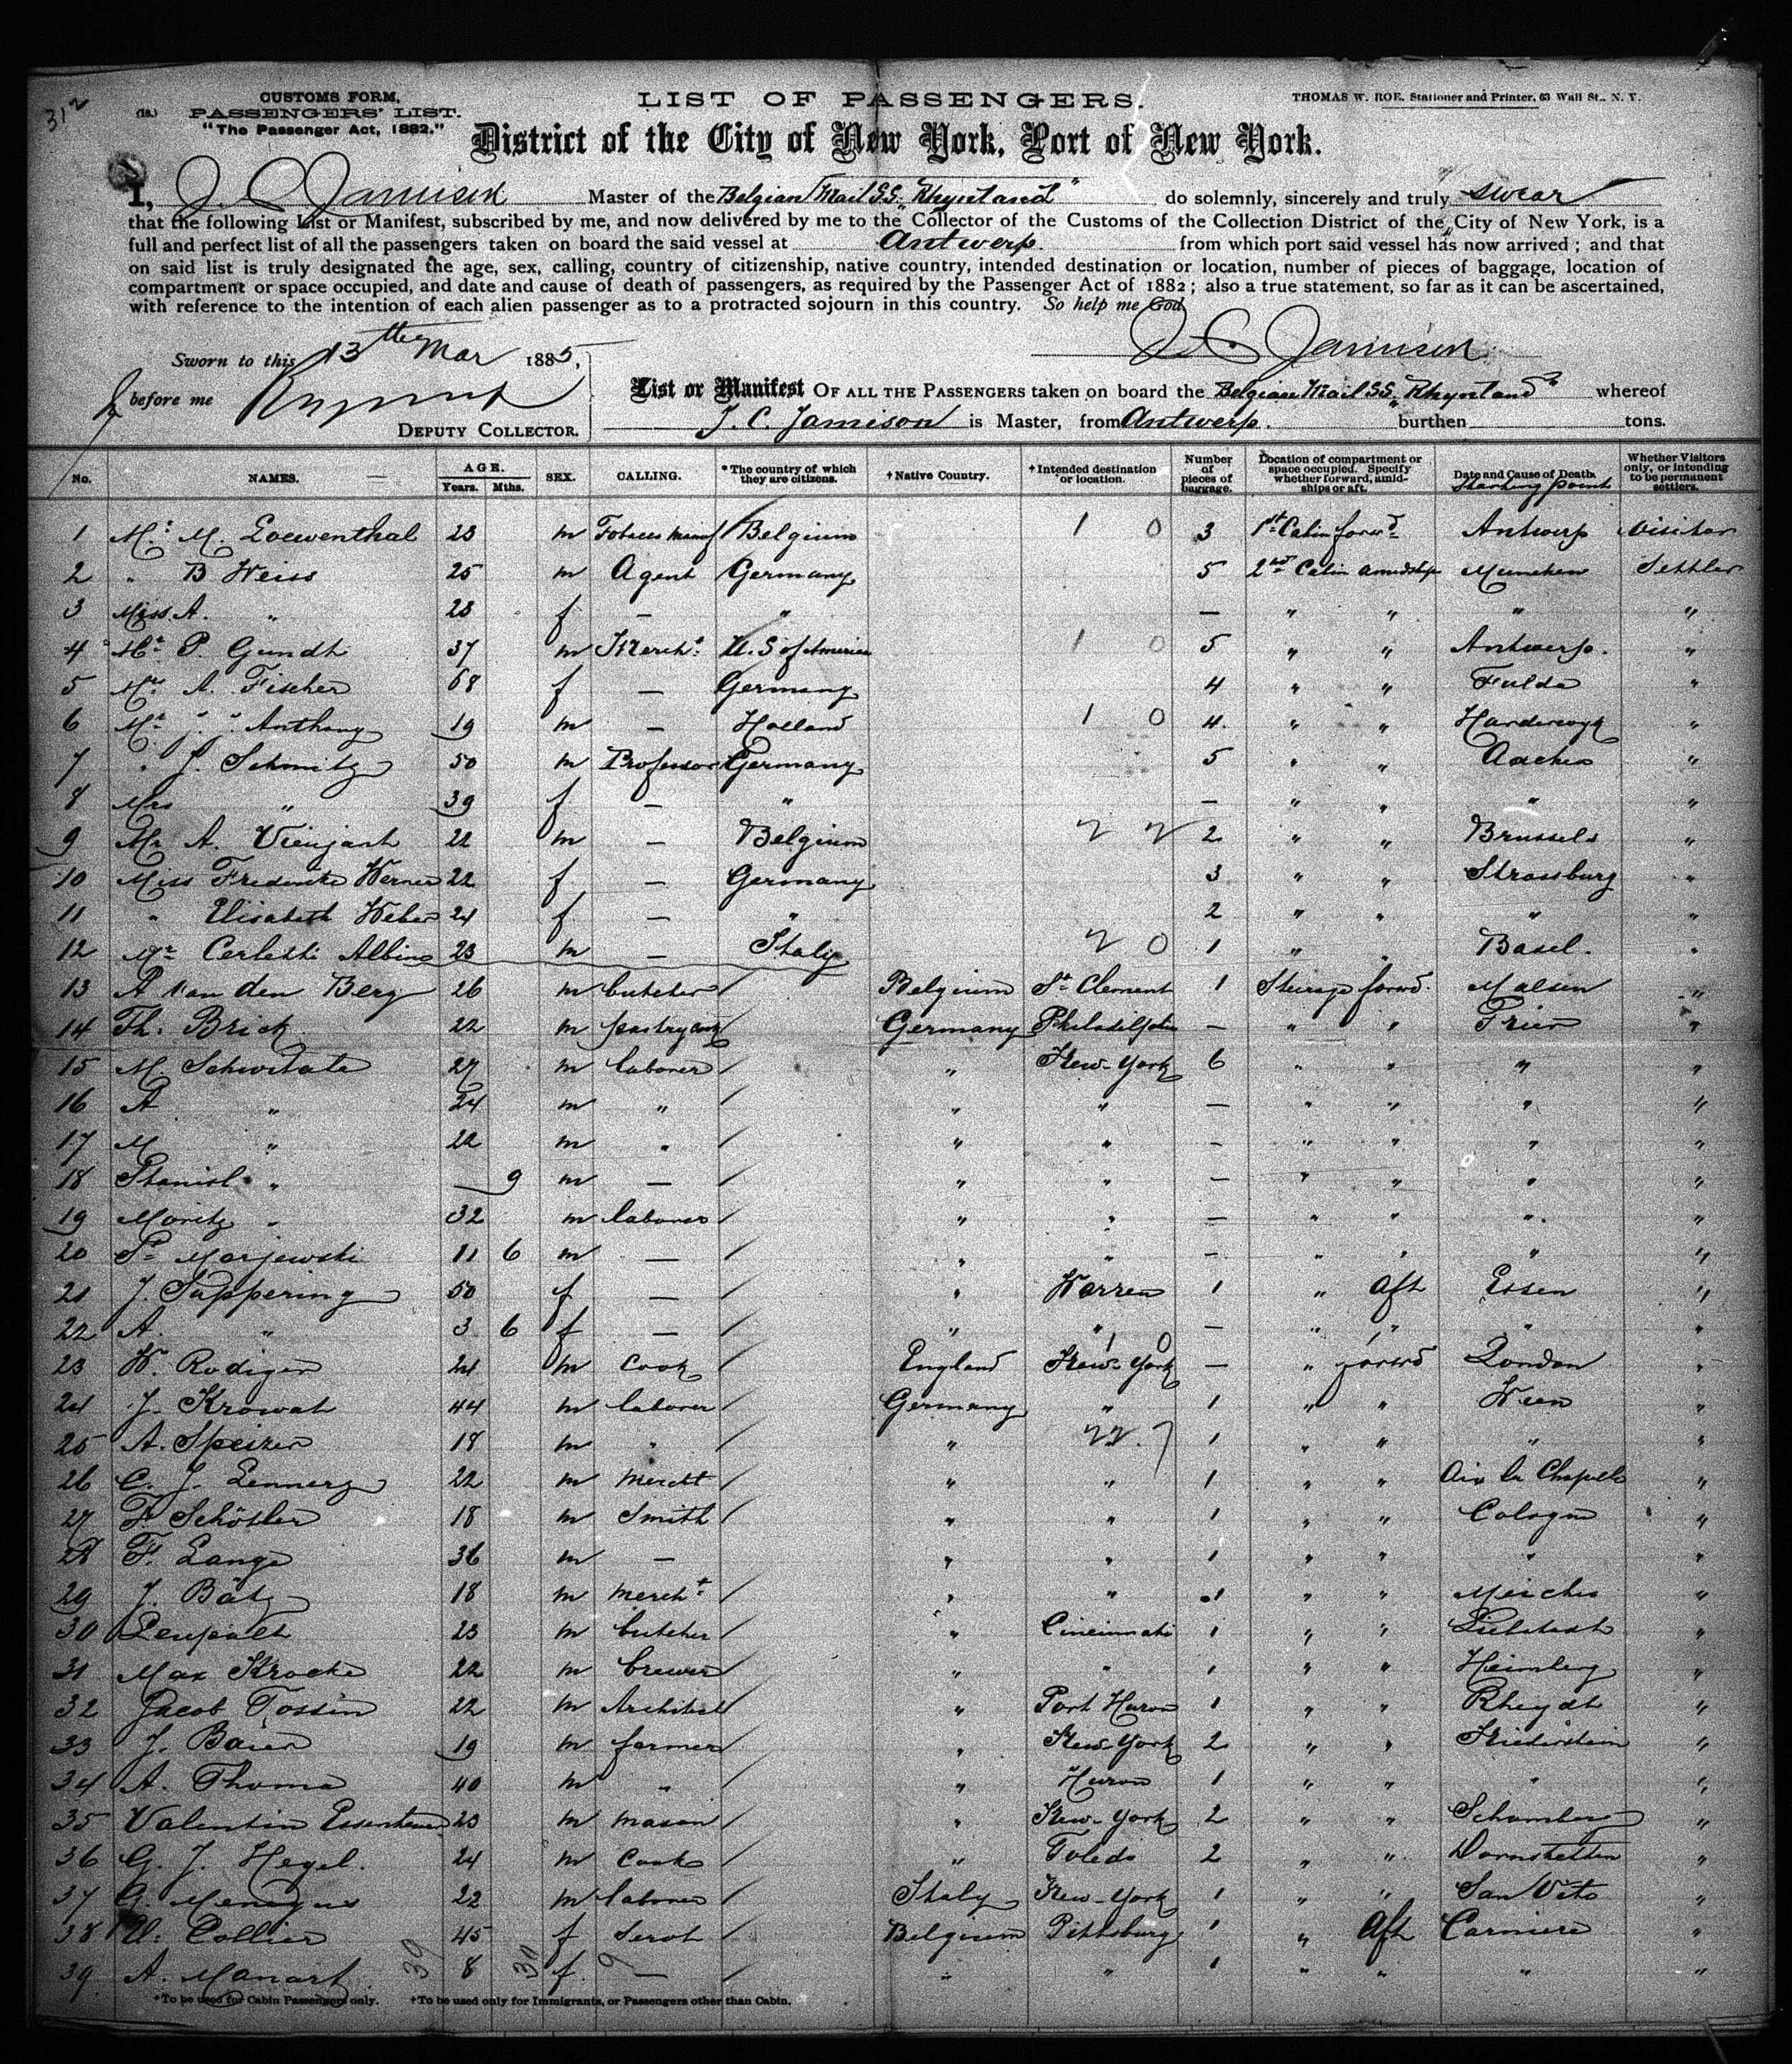 312
CUSTOMS FORM,
(18.) PASSENGERS' LIST.
"The Passenger Act, 1882."
LIST OF PASSENGERS.
THOMAS W. ROE, Stationer and Printer, 63 Wall St., N. Y.
District of the City of New York, Port of New York.
I, J. C. Jamison Master of the Belgian Mail S.S. "Rhynland" do solemnly, sincerely and truly swear
that the following List or Manifest, subscribed by me, and now delivered by me to the Collector of the Customs of the Collection District of the City of New York, is a
full and perfect list of all the passengers taken on board the said vessel at Antwerp. from which port said vessel has now arrived; and that
on said list is truly designated the age, sex, calling, country of citizenship, native country, intended destination or location, number of pieces of baggage, location of
compartment or space occupied, and date and cause of death of passengers, as required by the Passenger Act of 1882; also a true statement, so far as it can be ascertained,
with reference to the intention of each alien passenger as to a protracted sojourn in this country. So help me God
J. C. Jamison
Sworn to this 13th Mar 1885,
before me
DEPUTY COLLECTOR.
List or Manifest OF ALL THE PASSENGERS taken on board the Belgian Mail S.S. "Rhynland" whereof
J. C. Jamison is Master, from Antwerp. burthen tons.
No. NAMES. AGE. Years. Mths. SEX. CALLING. *The country of which they are citizens. †Native Country. †Intended destination or location. Number of pieces of baggage. Location of compartment or space occupied. Specify whether forward, amidships or aft. Date and Cause of Death. Starting point Whether Visitors only, or intending to be permanent settlers.
1 Mr. M. Loewenthal 23 m Tobacco Manuf Belgium 1 0 3 1st Cabin forwd Antwerp Visitor
2 " B Weiss 25 m Agent Germany 5 2nd Cabin amidship Munchen Settler
3 Miss A. " 23 f — " — " " " "
4 Mr P. Gundh 37 m Mercht. U. S of America 1 0 5 " " Antwerp. "
5 Mrs A. Fischer 68 f — Germany 4 " " Fulda "
6 Mr J. J. Anthony 19 m — Holland 1 0 4. " " Harderwyk "
7 " J. Schmitz 50 m Professor Germany 5 " " Aachen "
8 Mrs " 39 f — " — " " " "
9 Mr A. Vieujant 22 m — Belgium 2 " " Brussels "
10 Miss Frederike Werner 22 f — Germany 3 " " Strassburg "
11 " Elisabeth Weber 24 f — " 2 " " " "
12 Mr Cerletti Albino 23 m — Italy 0 1 " " Basel. "
13 A Van den Berg 26 m butcher / Belgium St Clement 1 Steerage forwd. Malsen "
14 Th. Brick 22 m pastrycook / Germany Philadelphia — " " Trier "
15 M. Schwitate 27 m laborer / " New-York 6 " " " "
16 A " 24 m " / " " — " " " "
17 M " 22 m " / " " — " " " "
18 Stanisl " — 9 m — / " " — " " " "
19 Moritz " 32 m laborer / " " — " " " "
20 St Marjewski 11 6 m — / " " — " " " "
21 J. Suppering 50 f — / " Warren 1 " Aft Essen "
22 A. " 3 6 f — / " " — " " " "
23 W. Rodiger 24 m Cook / England New-York 1 0 — " forwd London "
24 J. Krowat 44 m laborer / Germany " 1 " " Wien "
25 A. Speizer 18 m " / " 1 " " " "
26 C. J. Lennerz 22 m mercht / " " 1 " " Aix la Chapelle "
27 F Schösler 18 m Smith / " " 1 " " Cologne "
28 F. Lange 36 m — / " " 1 " " " "
29 J. Bätz 18 m mercht / " " 1 " " Meiches "
30 Leupalt 23 m butcher / " Cincinnati 1 " " "
31 Max Krocke 22 m brewer / " " 1 " " Heinsberg "
32 Jacob Tossin 22 m Architect / " Port Huron 1 " " Rheydt "
33 J. Baier 19 m farmer / " New-York 2 " " "
34 A. Thoma 40 m " / " Huron 1 " " " "
35 Valentin 23 m mason / " New-York 2 " " Schomberg "
36 G. J. Hegel. 24 m Cook / " Toledo 2 " " Dornstetten "
37 G. Menegus 22 m laborer / Italy New-York 1 " " San Vito "
38 V. Collier 45 f Servt / Belgium Pittsburg 1 " Aft Carniere "
39 A. Manart. 8 f. — / " " 1 " " " "
39 30 9
*To be used for Cabin Passengers only. †To be used only for Immigrants, or Passengers other than Cabin.